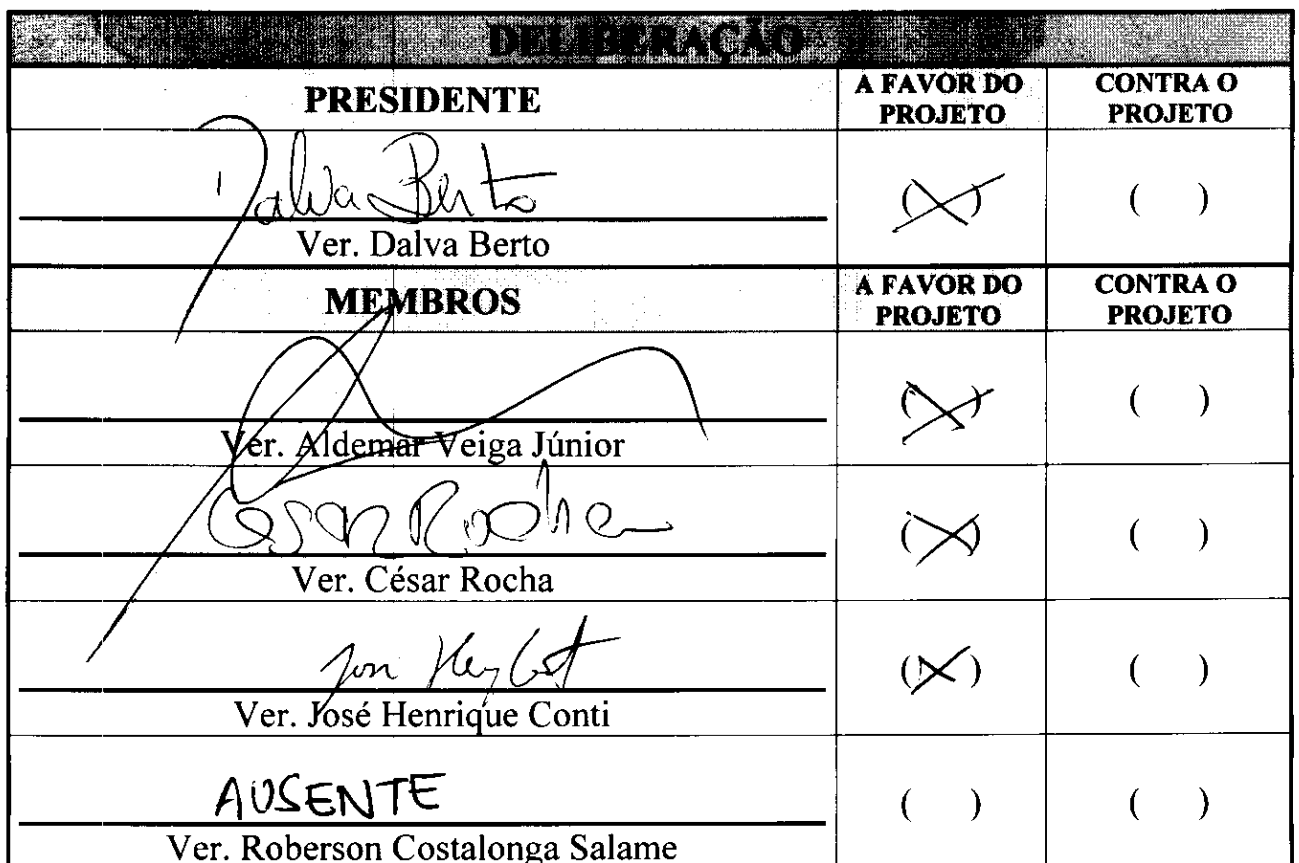 DELIBERAÇÃO
PRESIDENTE A FAVOR DO PROJETO CONTRA O PROJETO
Dalva Berto (X) ( )
Ver. Dalva Berto
MEMBROS A FAVOR DO PROJETO CONTRA O PROJETO
(X) ( )
Ver. Aldemar Veiga Júnior
Cesar Rocha (X) ( )
Ver. César Rocha
(X) ( )
Ver. José Henrique Conti
AUSENTE ( ) ( )
Ver. Roberson Costalonga Salame